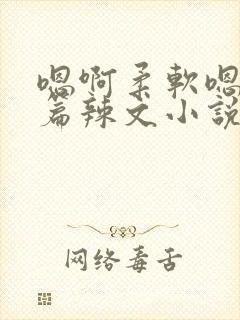 嗯啊柔軟嗯
篇辣文小説
网络毒舌